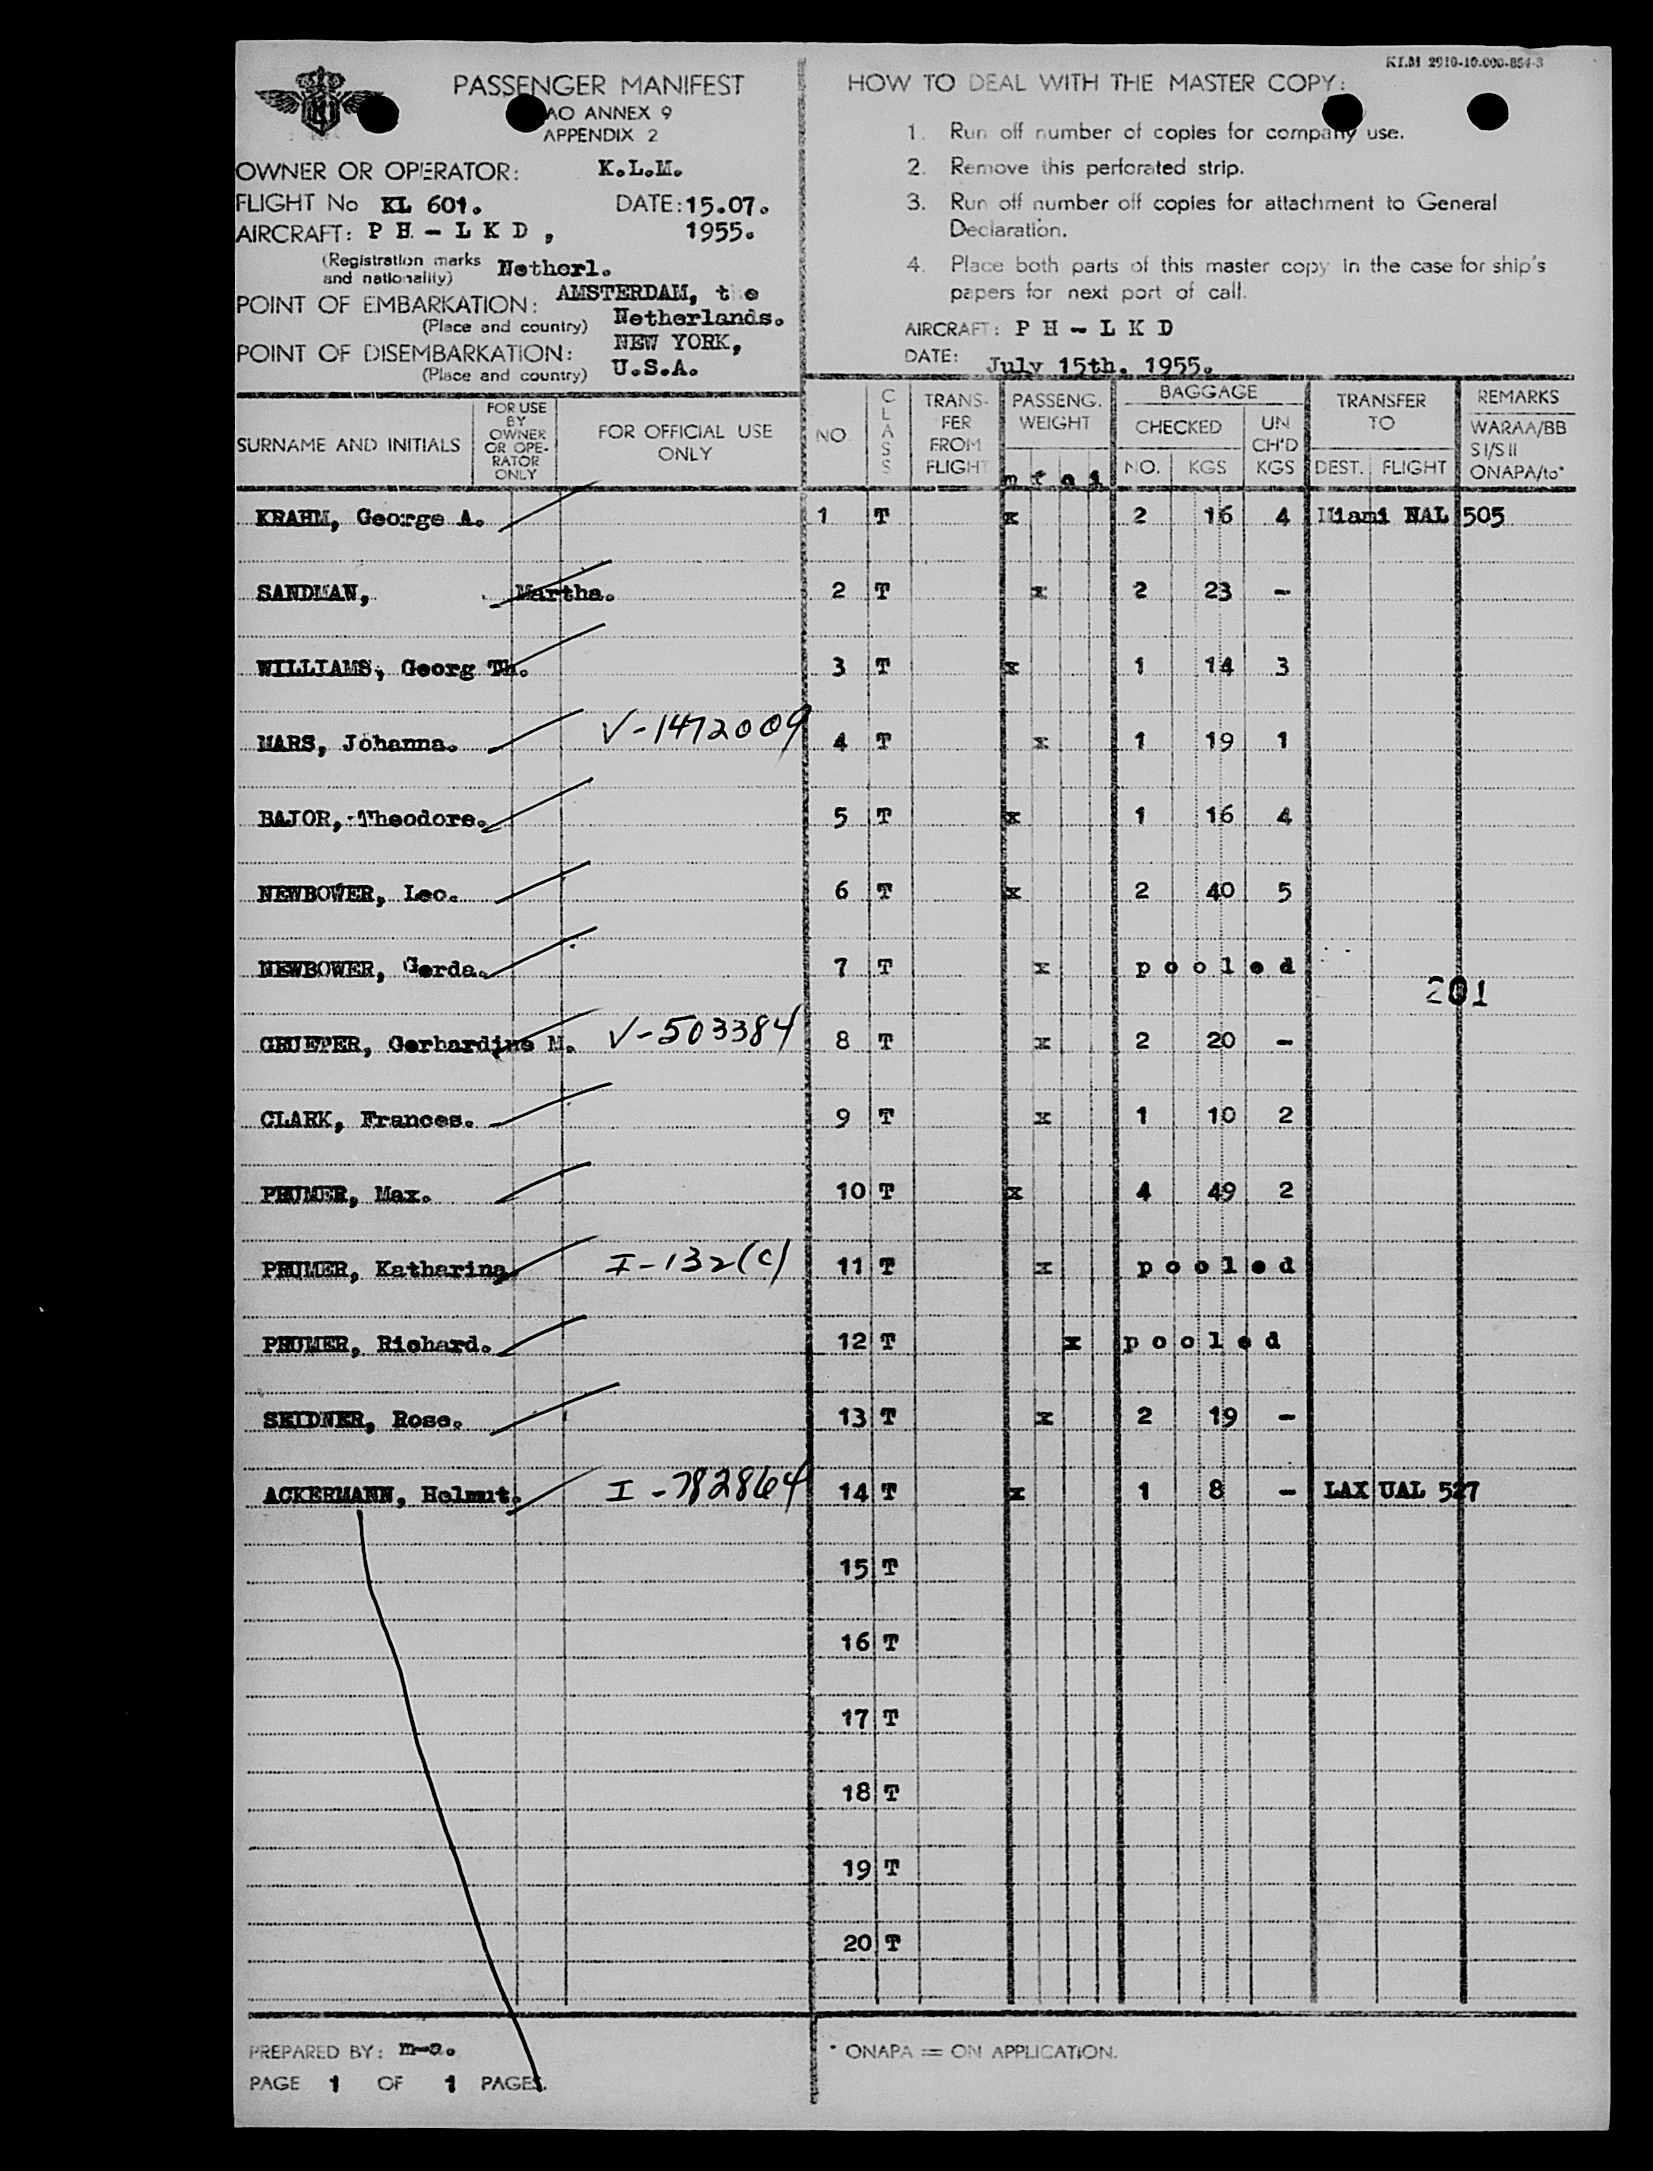 KLM 2910-10.000-854-3
PASSENGER MANIFEST
AO ANNEX 9
APPENDIX 2
OWNER OR OPERATOR: K.L.M.
FLIGHT No KL 601. DATE: 15.07.
AIRCRAFT: P H - L K D , 1955.
(Registration marks and nationality) Netherl.
POINT OF EMBARKATION: AMSTERDAM, the
(Place and country) Netherlands.
POINT OF DISEMBARKATION: NEW YORK,
(Place and country) U.S.A.
HOW TO DEAL WITH THE MASTER COPY:
1. Run off number of copies for company use.
2. Remove this perforated strip.
3. Run off number off copies for attachment to General
Declaration.
4. Place both parts of this master copy in the case for ship's
papers for next port of call.
AIRCRAFT: P H - L K D
DATE: July 15th. 1955.
SURNAME AND INITIALS
FOR USE
BY
OWNER
OR OPE-
RATOR
ONLY
FOR OFFICIAL USE
ONLY
NO
CLASS
TRANS-
FER
FROM
FLIGHT
PASSENG.
WEIGHT
m f c i
BAGGAGE
CHECKED
NO. KGS
UN
CH'D
KGS
TRANSFER
TO
DEST. FLIGHT
REMARKS
WARAA/BB
SI/SII
ONAPA/to*
KRAHM, George A. 1 T x 2 16 4 Miami NAL 505
SANDMAN, Martha. 2 T x 2 23 -
WILLIAMS, Georg Th. 3 T x 1 14 3
MARS, Johanna. V-1472009 4 T x 1 19 1
BAJOR, Theodore. 5 T x 1 16 4
NEWBOWER, Leo. 6 T x 2 40 5
NEWBOWER, Gerda. 7 T x pooled
201
GRUETER, Gerhardine M. V-503384 8 T x 2 20 -
CLARK, Frances. 9 T x 1 10 2
PRUMER, Max. 10 T x 4 49 2
PRUMER, Katharina I-132(c) 11 T x pooled
PRUMER, Richard. 12 T x pooled
SEIDNER, Rose. 13 T x 2 19 -
ACKERMANN, Helmut. I-782864 14 T x 1 8 - LAX UAL 527
15 T
16 T
17 T
18 T
19 T
20 T
PREPARED BY: m-o.
PAGE 1 OF 1 PAGES.
* ONAPA = ON APPLICATION.